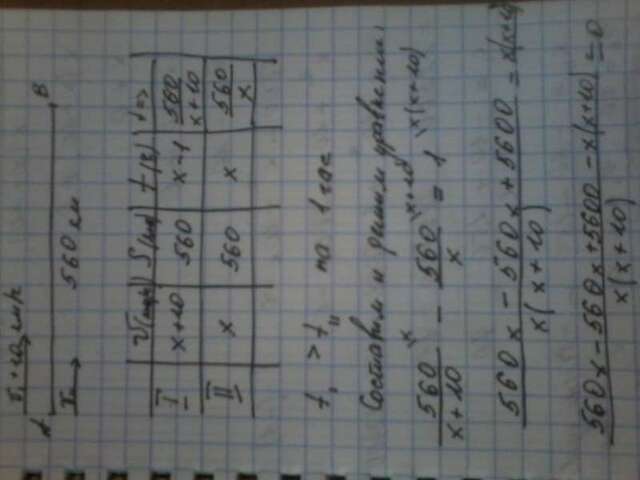 A 560 км B
V(км/ч) S(км) t(ч) t=>
I x+10 560 x-1 560/x+10
II x 560 x 560/x
t₁ > t₁₁ на 1 час
Составим и решим уравнение:
560/x+10 \x - 560/x \x+10 = 1 \x(x+10)
560x - 560x + 5600/x(x+10) = x(x+10)
560x - 560x + 5600 - x(x+10)/x(x+10) = 0